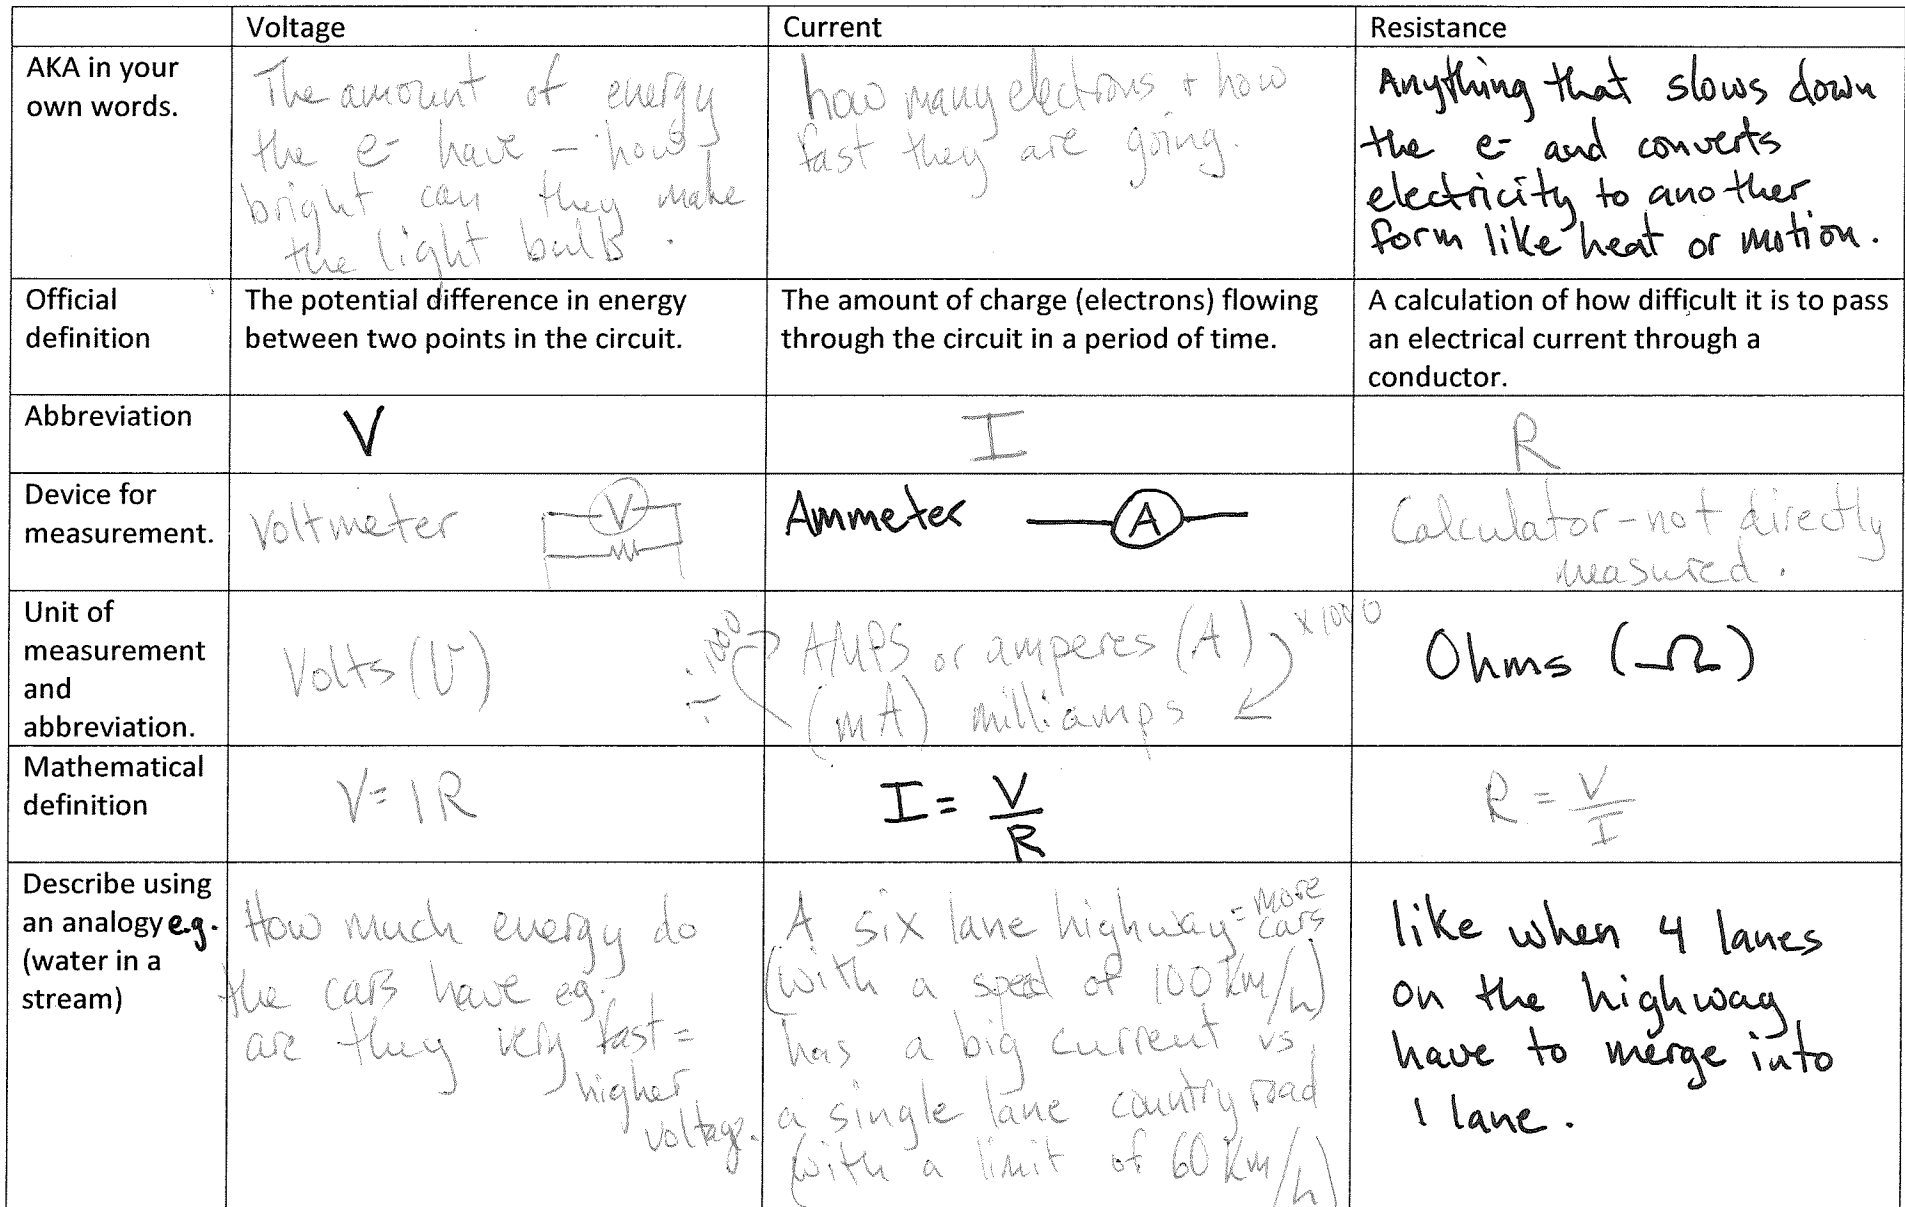 Voltage
Current
Resistance
AKA in your
own words.
The amount of energy
the e- have - how
bright can they make
the light bulb.
how many electrons + how
fast they are going.
Anything that slows down
the e- and converts
electricity to another
form like heat or motion.
Official
definition
The potential difference in energy
between two points in the circuit.
The amount of charge (electrons) flowing
through the circuit in a period of time.
A calculation of how difficult it is to pass
an electrical current through a
conductor.
Abbreviation
V
I
R
Device for
measurement.
Voltmeter
V
Ammeter
A
Calculator - not directly
measured.
Unit of
measurement
and
abbreviation.
Volts (V)
÷ 1000
AMPS or amperes (A)
(mA) milliamps
x 1000
Ohms (Ω)
Mathematical
definition
V = IR
I = V/R
R = V/I
Describe using
an analogy e.g.
(water in a
stream)
How much energy do
the cars have eg.
are they very fast =
higher
voltage.
A six lane highway = more cars
(with a speed of 100 Km/h)
has a big current vs
a single lane country road
(with a limit of 60 Km/h)
like when 4 lanes
on the highway
have to merge into
1 lane.